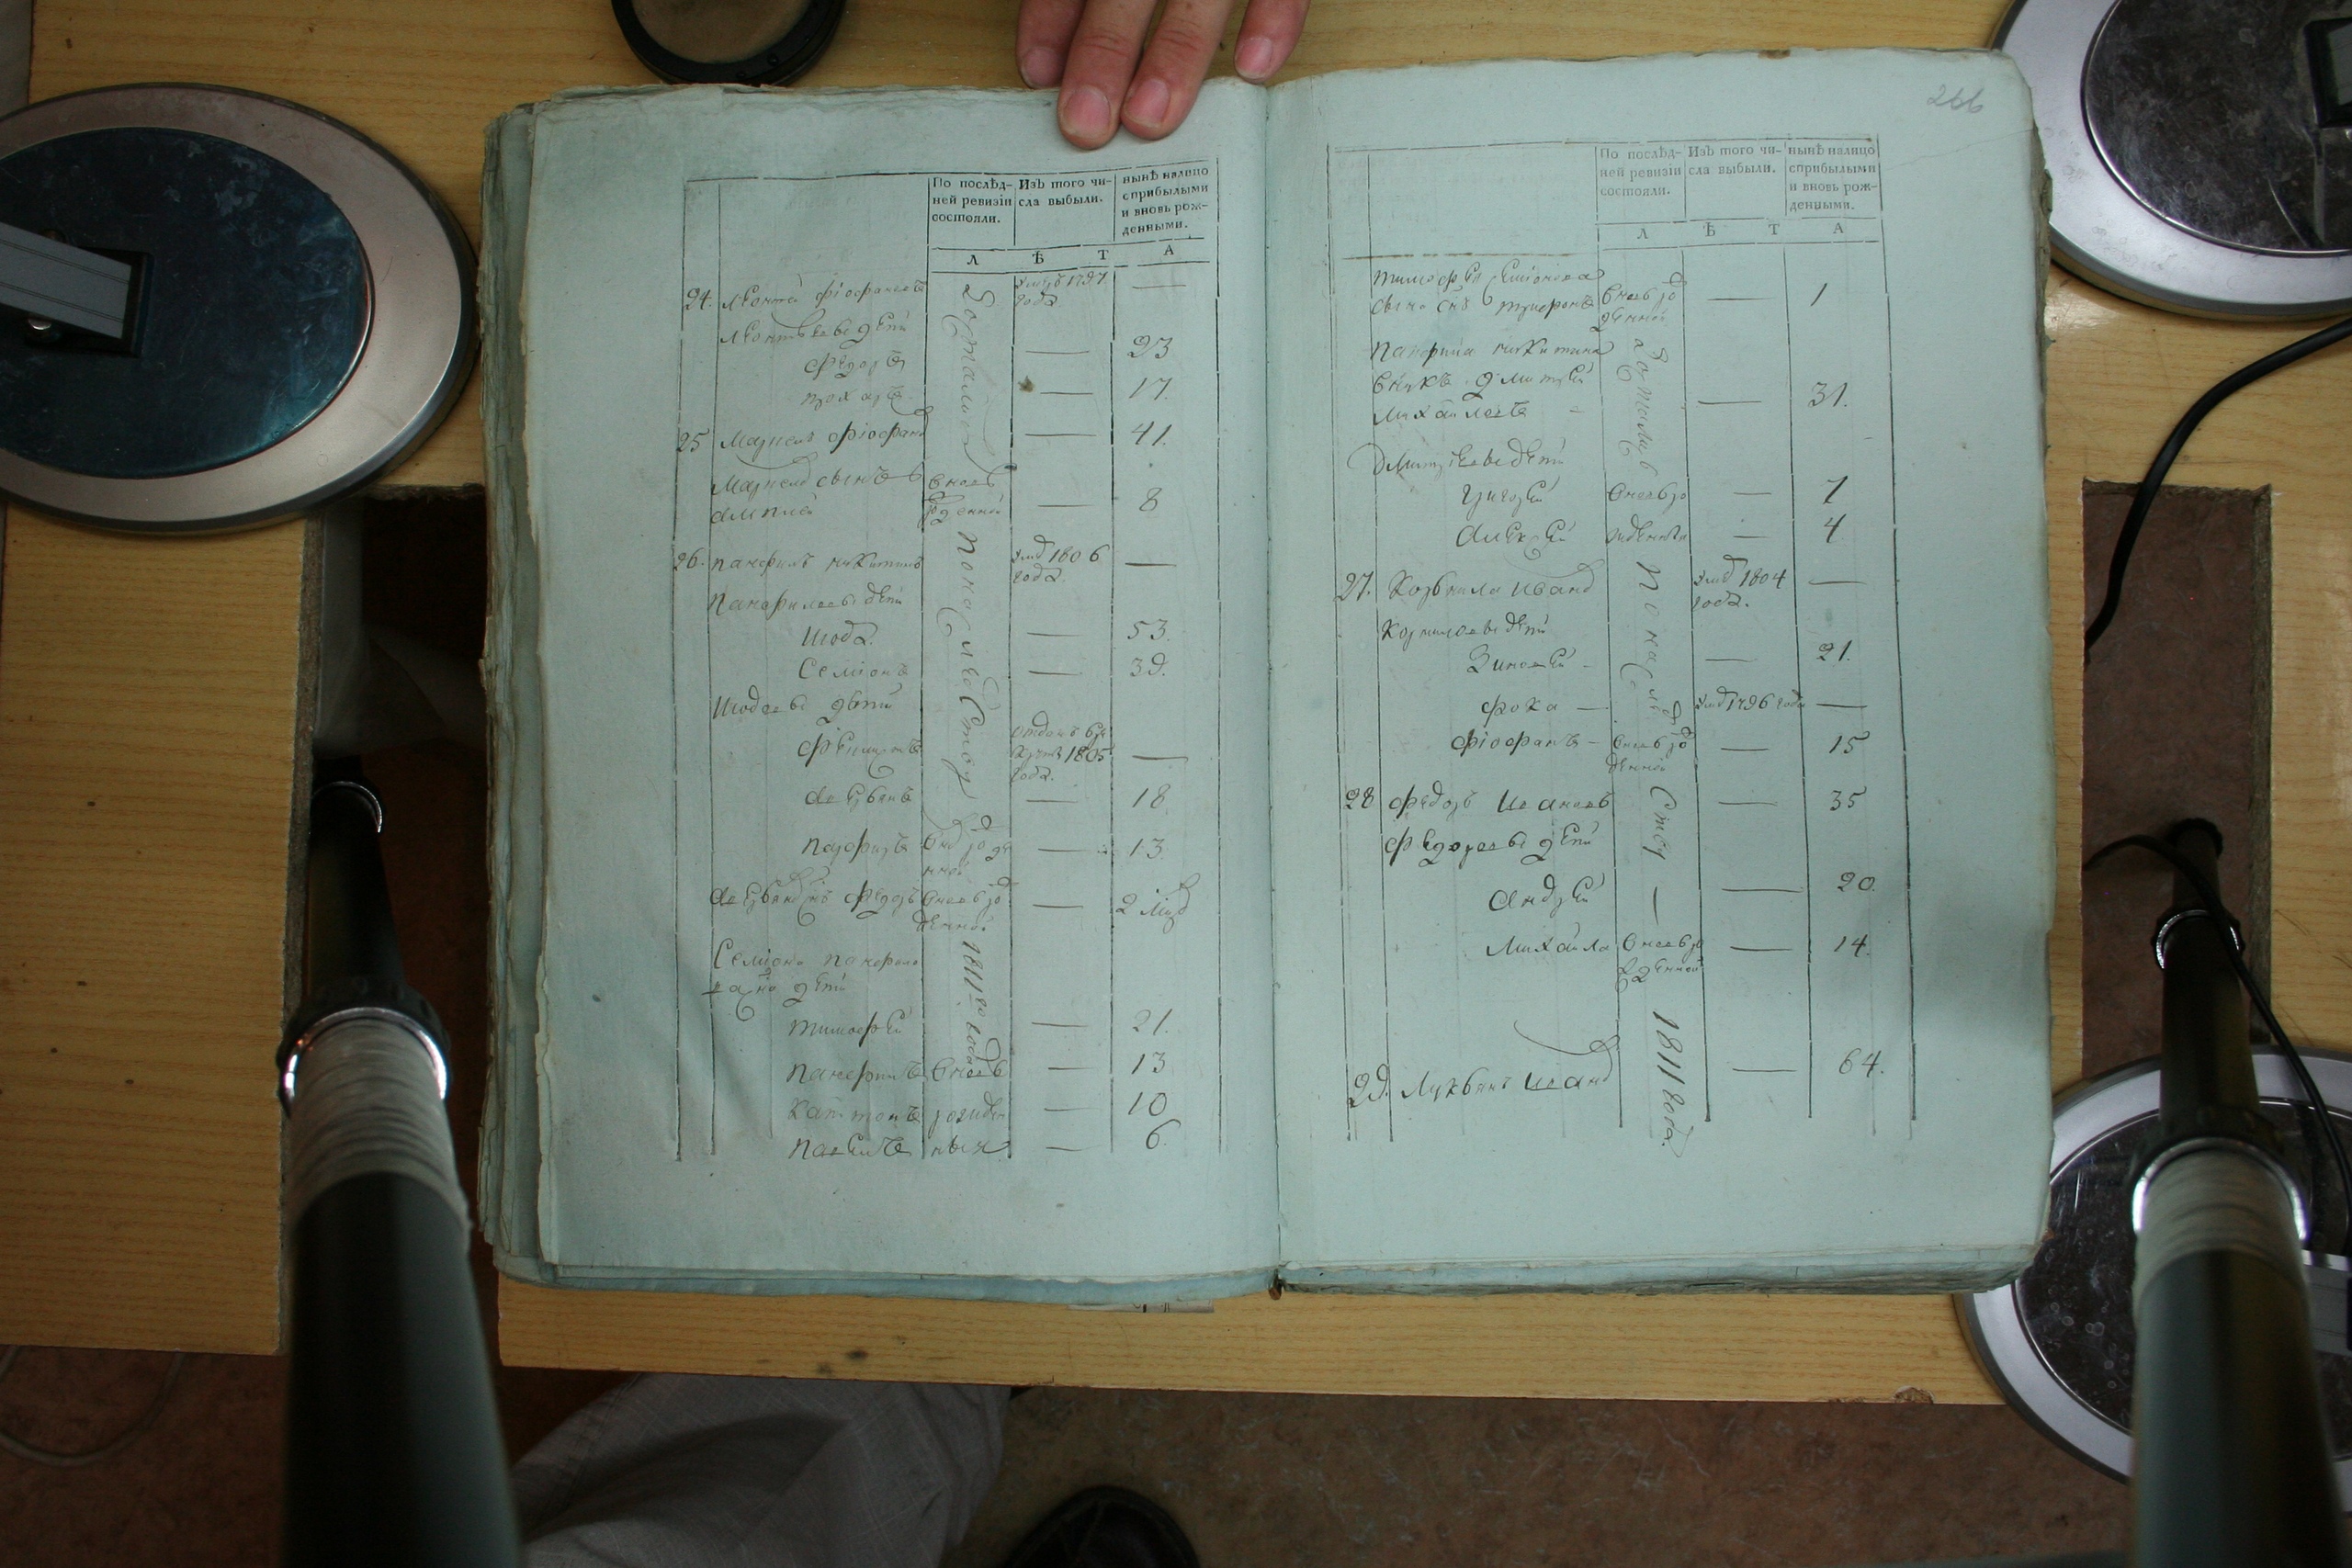 По послѣд-
ней ревизіи
состояли.
Изъ того чи-
сла выбыли.
нынѣ налицо
сприбылыми
и вновь рож-
денными.
Л Ѣ Т А
24. Леонтей фіофановъ
умръ 1797
года —
Леонтьевы дѣти
федоръ — 23
прохаръ — 17.
25 Маркелъ фіофанов — 41.
Маркелов сынъ вновь
рожденной — 8
26. панфилъ никитинъ умр 1806
года. —
Панфиловы дети
Июда — 53.
Семіонъ — 39.
Июдовы дѣти
филипъ отданъ в ре
круты 1805
года. —
аверьянъ — 18
парфиръ — 13.
федоръ вновь рож
денной — 2 мцов
Семіона панфило
дѣти
тимофей — 21.
панфилъ вновь — 13
капитонъ рожден — 10
павелъ ныя — 6.
1811го года
266
По послѣд-
ней ревизіи
состояли.
Изъ того чи-
сла выбыли.
нынѣ налицо
сприбылыми
и вновь рож-
денными.
Л Ѣ Т А
тимофея Семіонова
сына снъ трифонъ вновь ро
жденной — 1
панфила никитина
внукъ дмитрей
михайловъ — 31.
Дмитревы дѣти
григорей вновь ро — 7
алексей жденыя — 4.
27. Корнила иванов умр 1804
года. —
корниловы дѣти
Зиновей — 21.
фока — умр 1796 года —
фіофанъ — вновь ро
жденной — 15
28 федоръ Ивановъ — 35
федоровы дѣти
андрей — 20.
Михайла вновь ро
жденной — 14.
29. Лукьянъ иванов — 64.
1811 года.